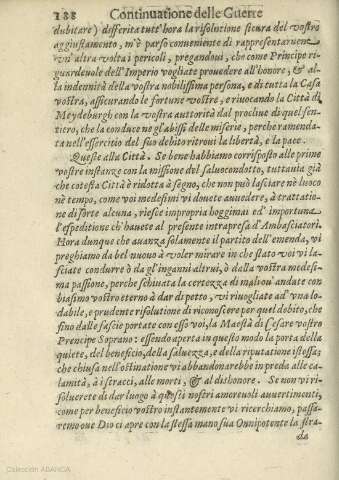 188 Continuatione delle Guerre
dubitare) differita tutt'hora la risolutione sicura del vostro
aggiustamento, m'è parso conueniente di rappresentaruene
vn'altra volta i pericoli, pregandoui, che come Principe ri-
guardeuole dell'Imperio vogliate prouedere all'honore, & al-
la indennità della vostra nobilissima persona, e di tutta la Casa
vostra, assicurando le fortune vostre, e riuocando la Città di
Meydeburgh con la vostra autorità dal procliue di quel sen-
tiero, che la conduce ne gl'abissi delle miserie, perche ramenda-
ta nell'essercitio del suo debito ritroui la libertà, e la pace.
Queste alla Città. Se bene habbiamo corrisposto alle prime
vostre instanze con la missione del saluocondotto, tuttauia già
che cotesta Città è ridotta à segno, che non può lasciare nè luoco
nè tempo, come voi medesimi vi douete auuedere, à trattatio-
ne di sorte alcuna, riesce impropria hoggimai ed' importuna
l'espeditione ch'hauete al presente intrapresa d'Ambasciatori.
Hora dunque che auanza solamente il partito dell'emenda, vi
preghiamo da bel nuouo à voler mirare in che stato voi vi la-
sciate condurre ò da gl'inganni altrui, ò dalla vostra medesi-
ma passione, perche schiuata la certezza di mali ou' andate con
biasimo vostro eterno à dar di petto, vi riuogliate ad' vna lo-
dabile, e prudente risolutione di riconoscere per quel debito, che
fino dalle fascie portate con esso voi, la Maestà di Cesare vostro
Prencipe Soprano: essendo aperta in questo modo la porta della
quiete, del beneficio, della saluezza, e della riputatione istessa;
che chiusa nell'ostinatione vi abbandonarebbe in preda alle ca-
lamità, à i stracci, alle morti, & al dishonore. Se non vi ri-
soluerete di dar luogo à questi nostri amoreuoli auuertimenti,
come per beneficio vostro instantemente vi ricerchiamo, passa-
remo oue Dio ci apre con la stessa mano sua Onnipotente la stra-
da
Colección ABANCA